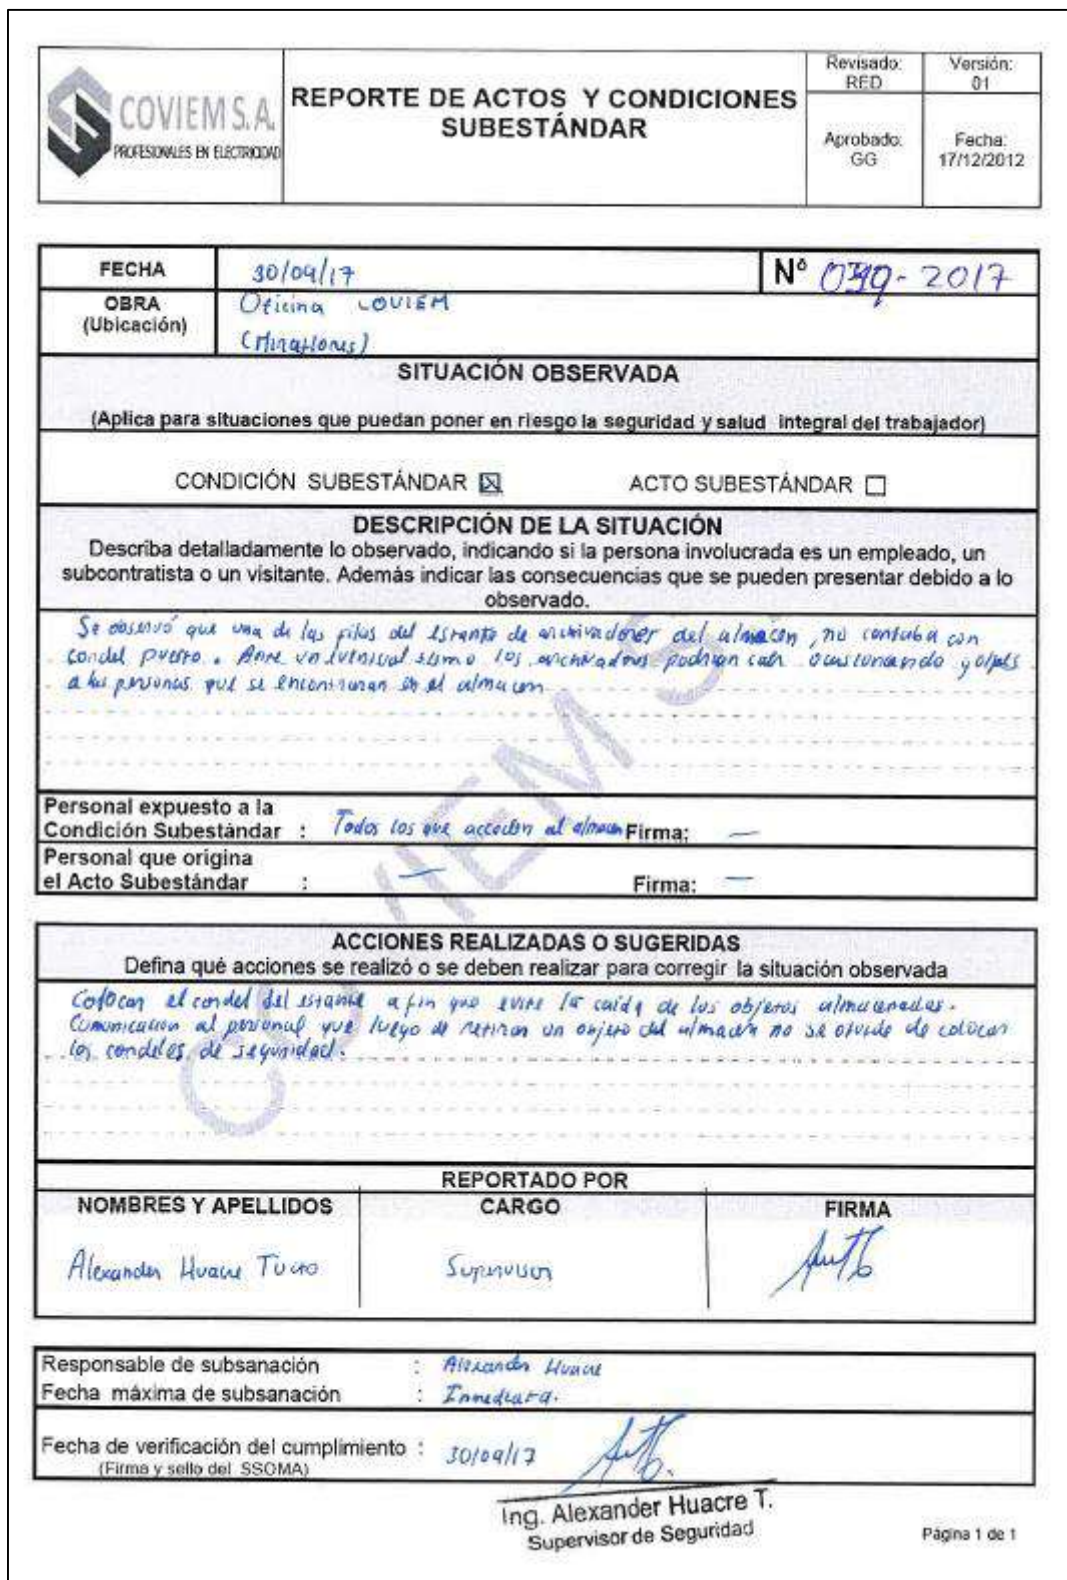 COVIEM S.A.
PROFESIONALES EN ELECTRICIDAD
REPORTE DE ACTOS Y CONDICIONES
SUBESTÁNDAR
Revisado:
RED
Versión:
01
Aprobado:
GG
Fecha:
17/12/2012
FECHA
30/09/17
N° 2017
OBRA
(Ubicación)
Oficina COVIEM
(Miraflores)
SITUACIÓN OBSERVADA
(Aplica para situaciones que puedan poner en riesgo la seguridad y salud integral del trabajador)
CONDICIÓN SUBESTÁNDAR ☒ ACTO SUBESTÁNDAR ☐
DESCRIPCIÓN DE LA SITUACIÓN
Describa detalladamente lo observado, indicando si la persona involucrada es un empleado, un
subcontratista o un visitante. Además indicar las consecuencias que se pueden presentar debido a lo
observado.
Se observó que una de las filas del estante de archivadores del almacén, no contaba con
cordel puesto. Ante un eventual sismo los archivadores podrían caer ocasionando golpes
a las personas que se encontraran en el almacen
Personal expuesto a la
Condición Subestándar : Todos los que acceden al almacen Firma: —
Personal que origina
el Acto Subestándar : — Firma: —
ACCIONES REALIZADAS O SUGERIDAS
Defina qué acciones se realizó o se deben realizar para corregir la situación observada
Colocar el cordel del estante a fin que evite la caída de los objetos almacenados.
Comunicacion al personal que luego de retirar un objeto del almacén no se olvide de colocar
los cordeles de seguridad.
REPORTADO POR
NOMBRES Y APELLIDOS
CARGO
FIRMA
Alexander Huacre
Supervisor
Responsable de subsanación : Alexander Huacre
Fecha máxima de subsanación : Inmediata.
Fecha de verificación del cumplimiento : 30/09/17
(Firma y sello del SSOMA)
Ing. Alexander Huacre T.
Supervisor de Seguridad
Página 1 de 1
COVIEM S